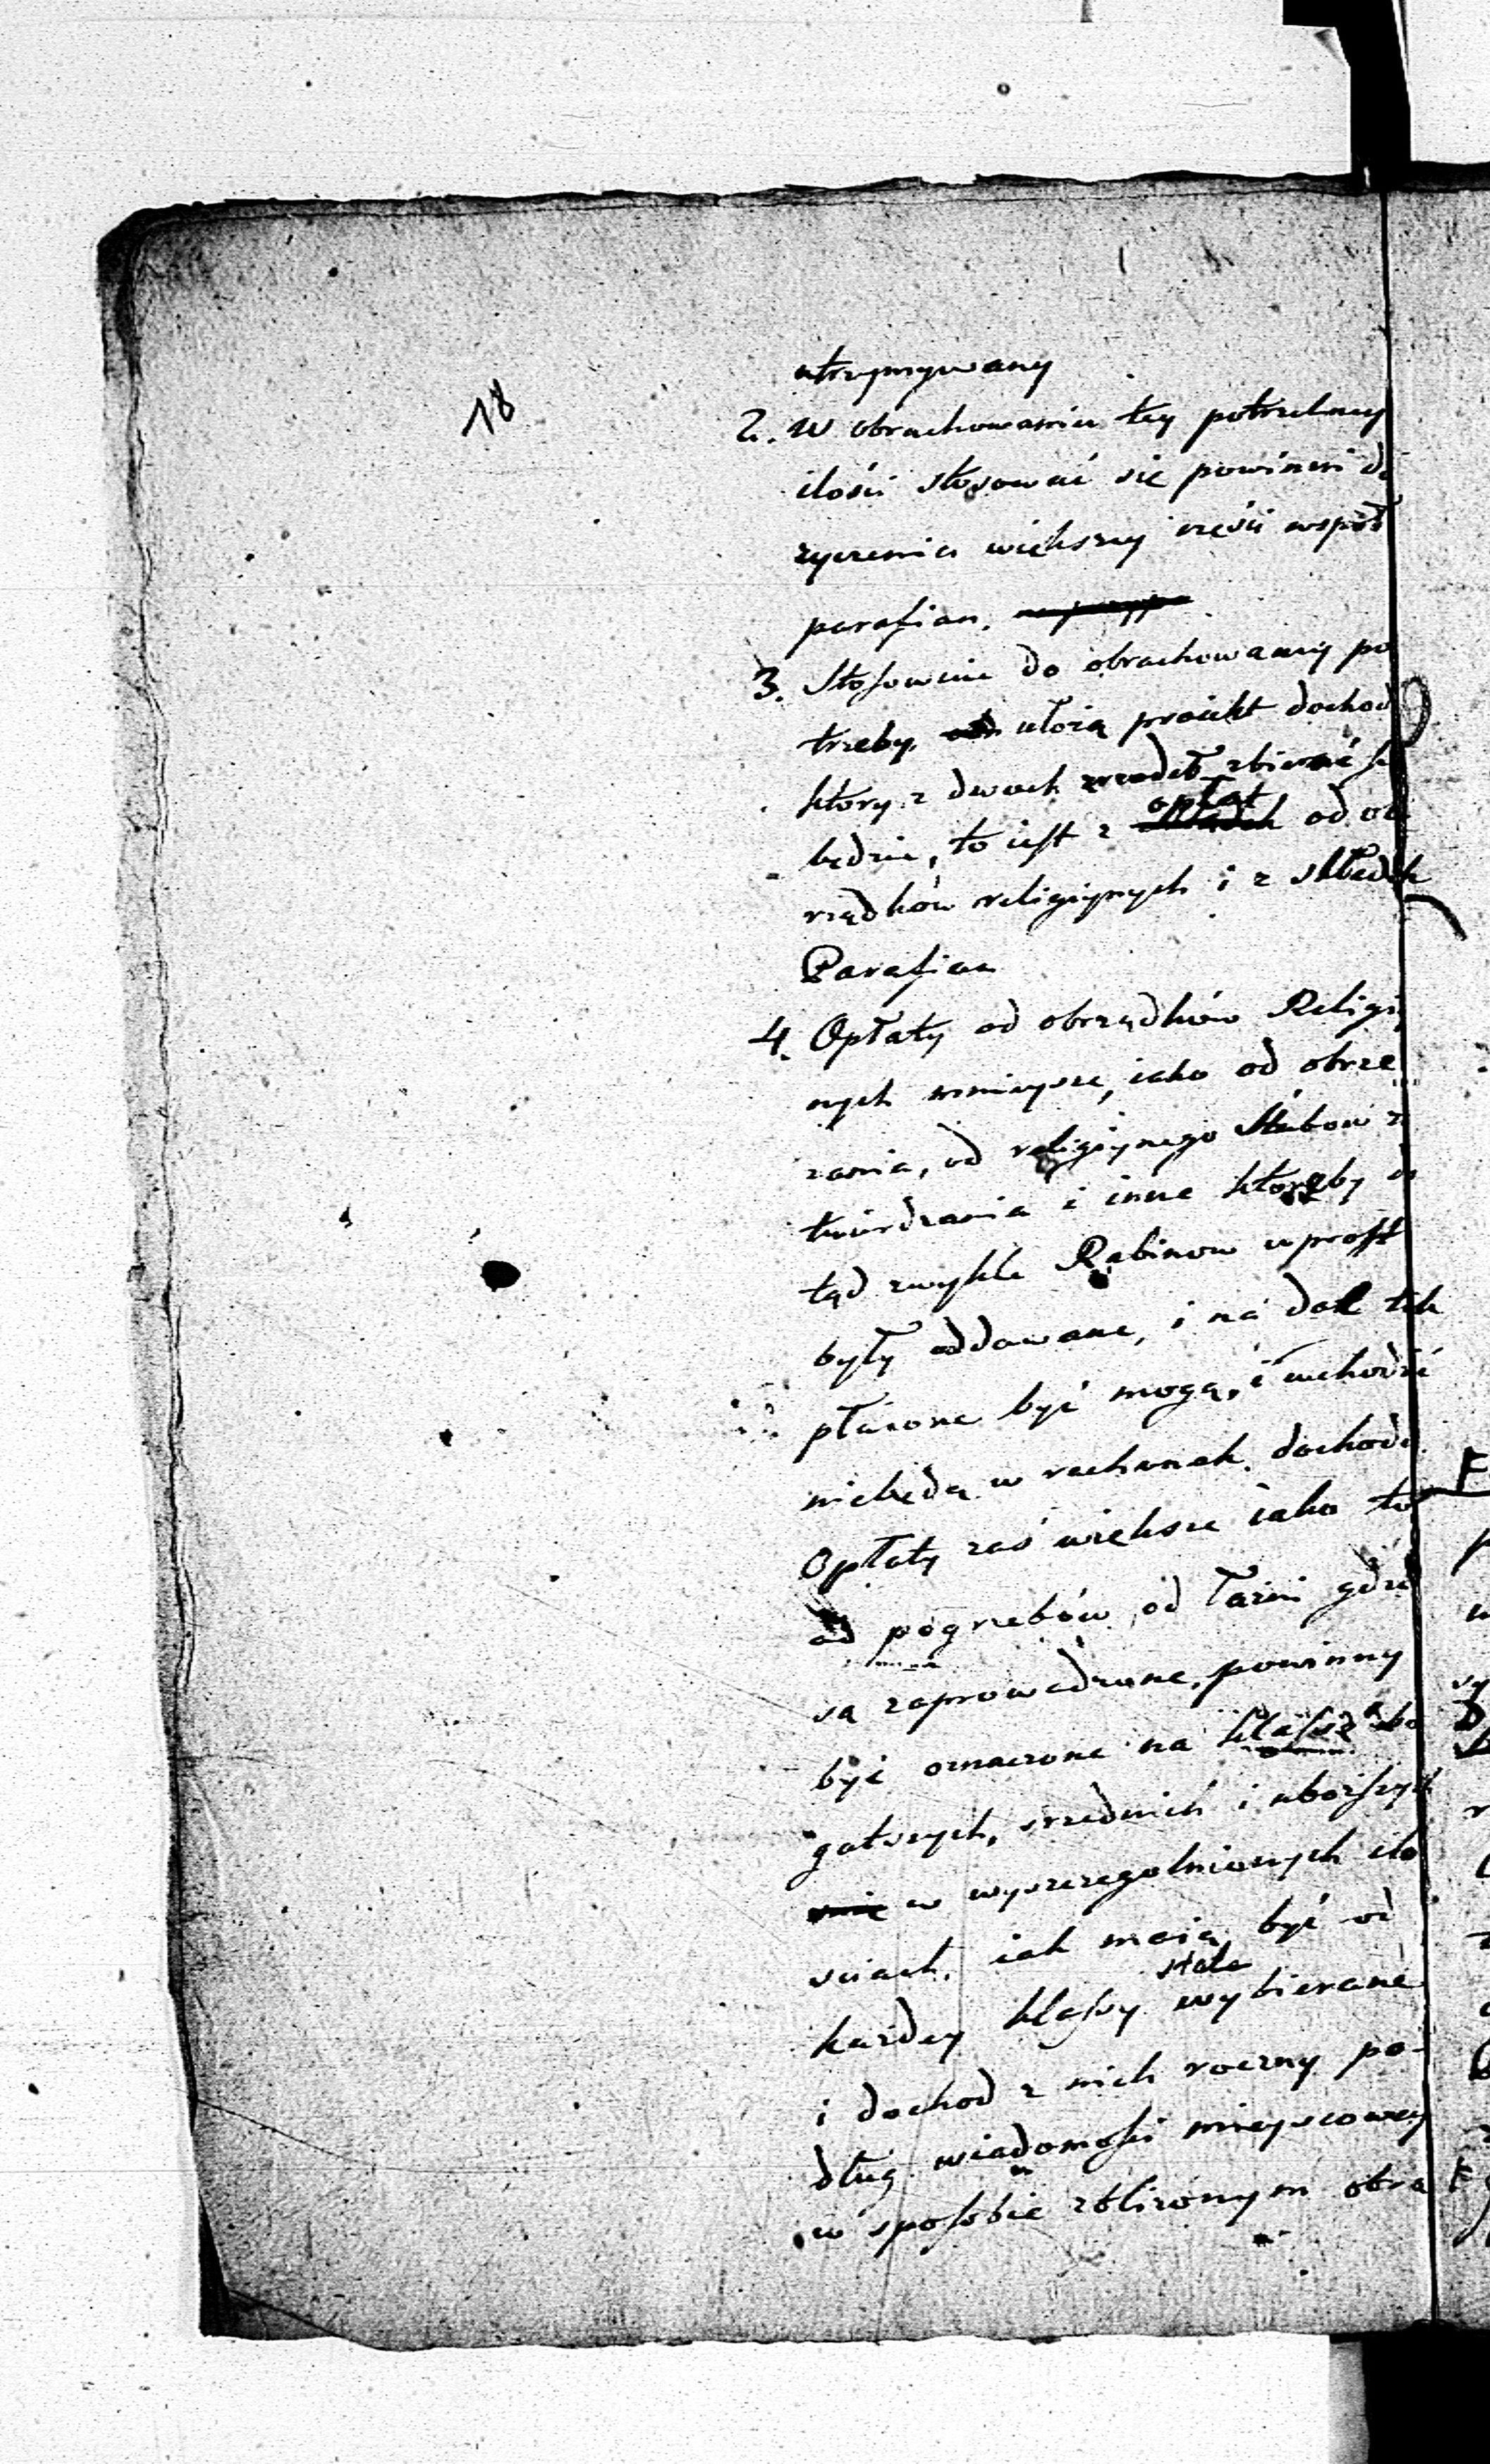 18
utrzymywany
2. W obrachowaniu tey potrzebney
ilości stosować się powinni do
życzenia większey części współ
parafian.
3. Stosownie do obrachowaney po
trzeby ułożą proiekt dochod
ktory z dwoch zrzodeł zbierać się
będzie, to iest z opłat od ob
rządków religiynych i z składek
Parafian
4. Opłaty od obrządków Religiy
nych mnieysze, iako od obrze
zania, od religiynego Slubow za
twierdzania i inne któreby do
tąd zwykle Rabinow wprost
były oddawane, i na dal tak
płacone być mogą, i wchodzić
niebędą w rachunek dochodu.
Opłaty zaś większe iako to
od pogrzebów, od łaźni gdzie
są zaprowadzone, powinny
być oznaczone na klassę bo
gatszych, srzednich i uboższych
w wyszczegolnionych ilo
sciach, iak maią być od
każdey klassy stale wybierane
i dochod z nich roczny po-
dług wiadomości mieyscowey
w sposobie zbliżonym obra